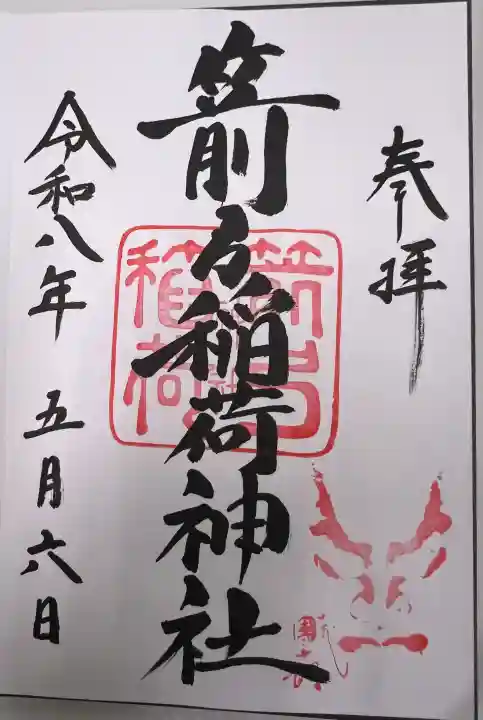 奉拝
箭弓稲荷神社
箭弓
稲荷
令和八年 五月六日